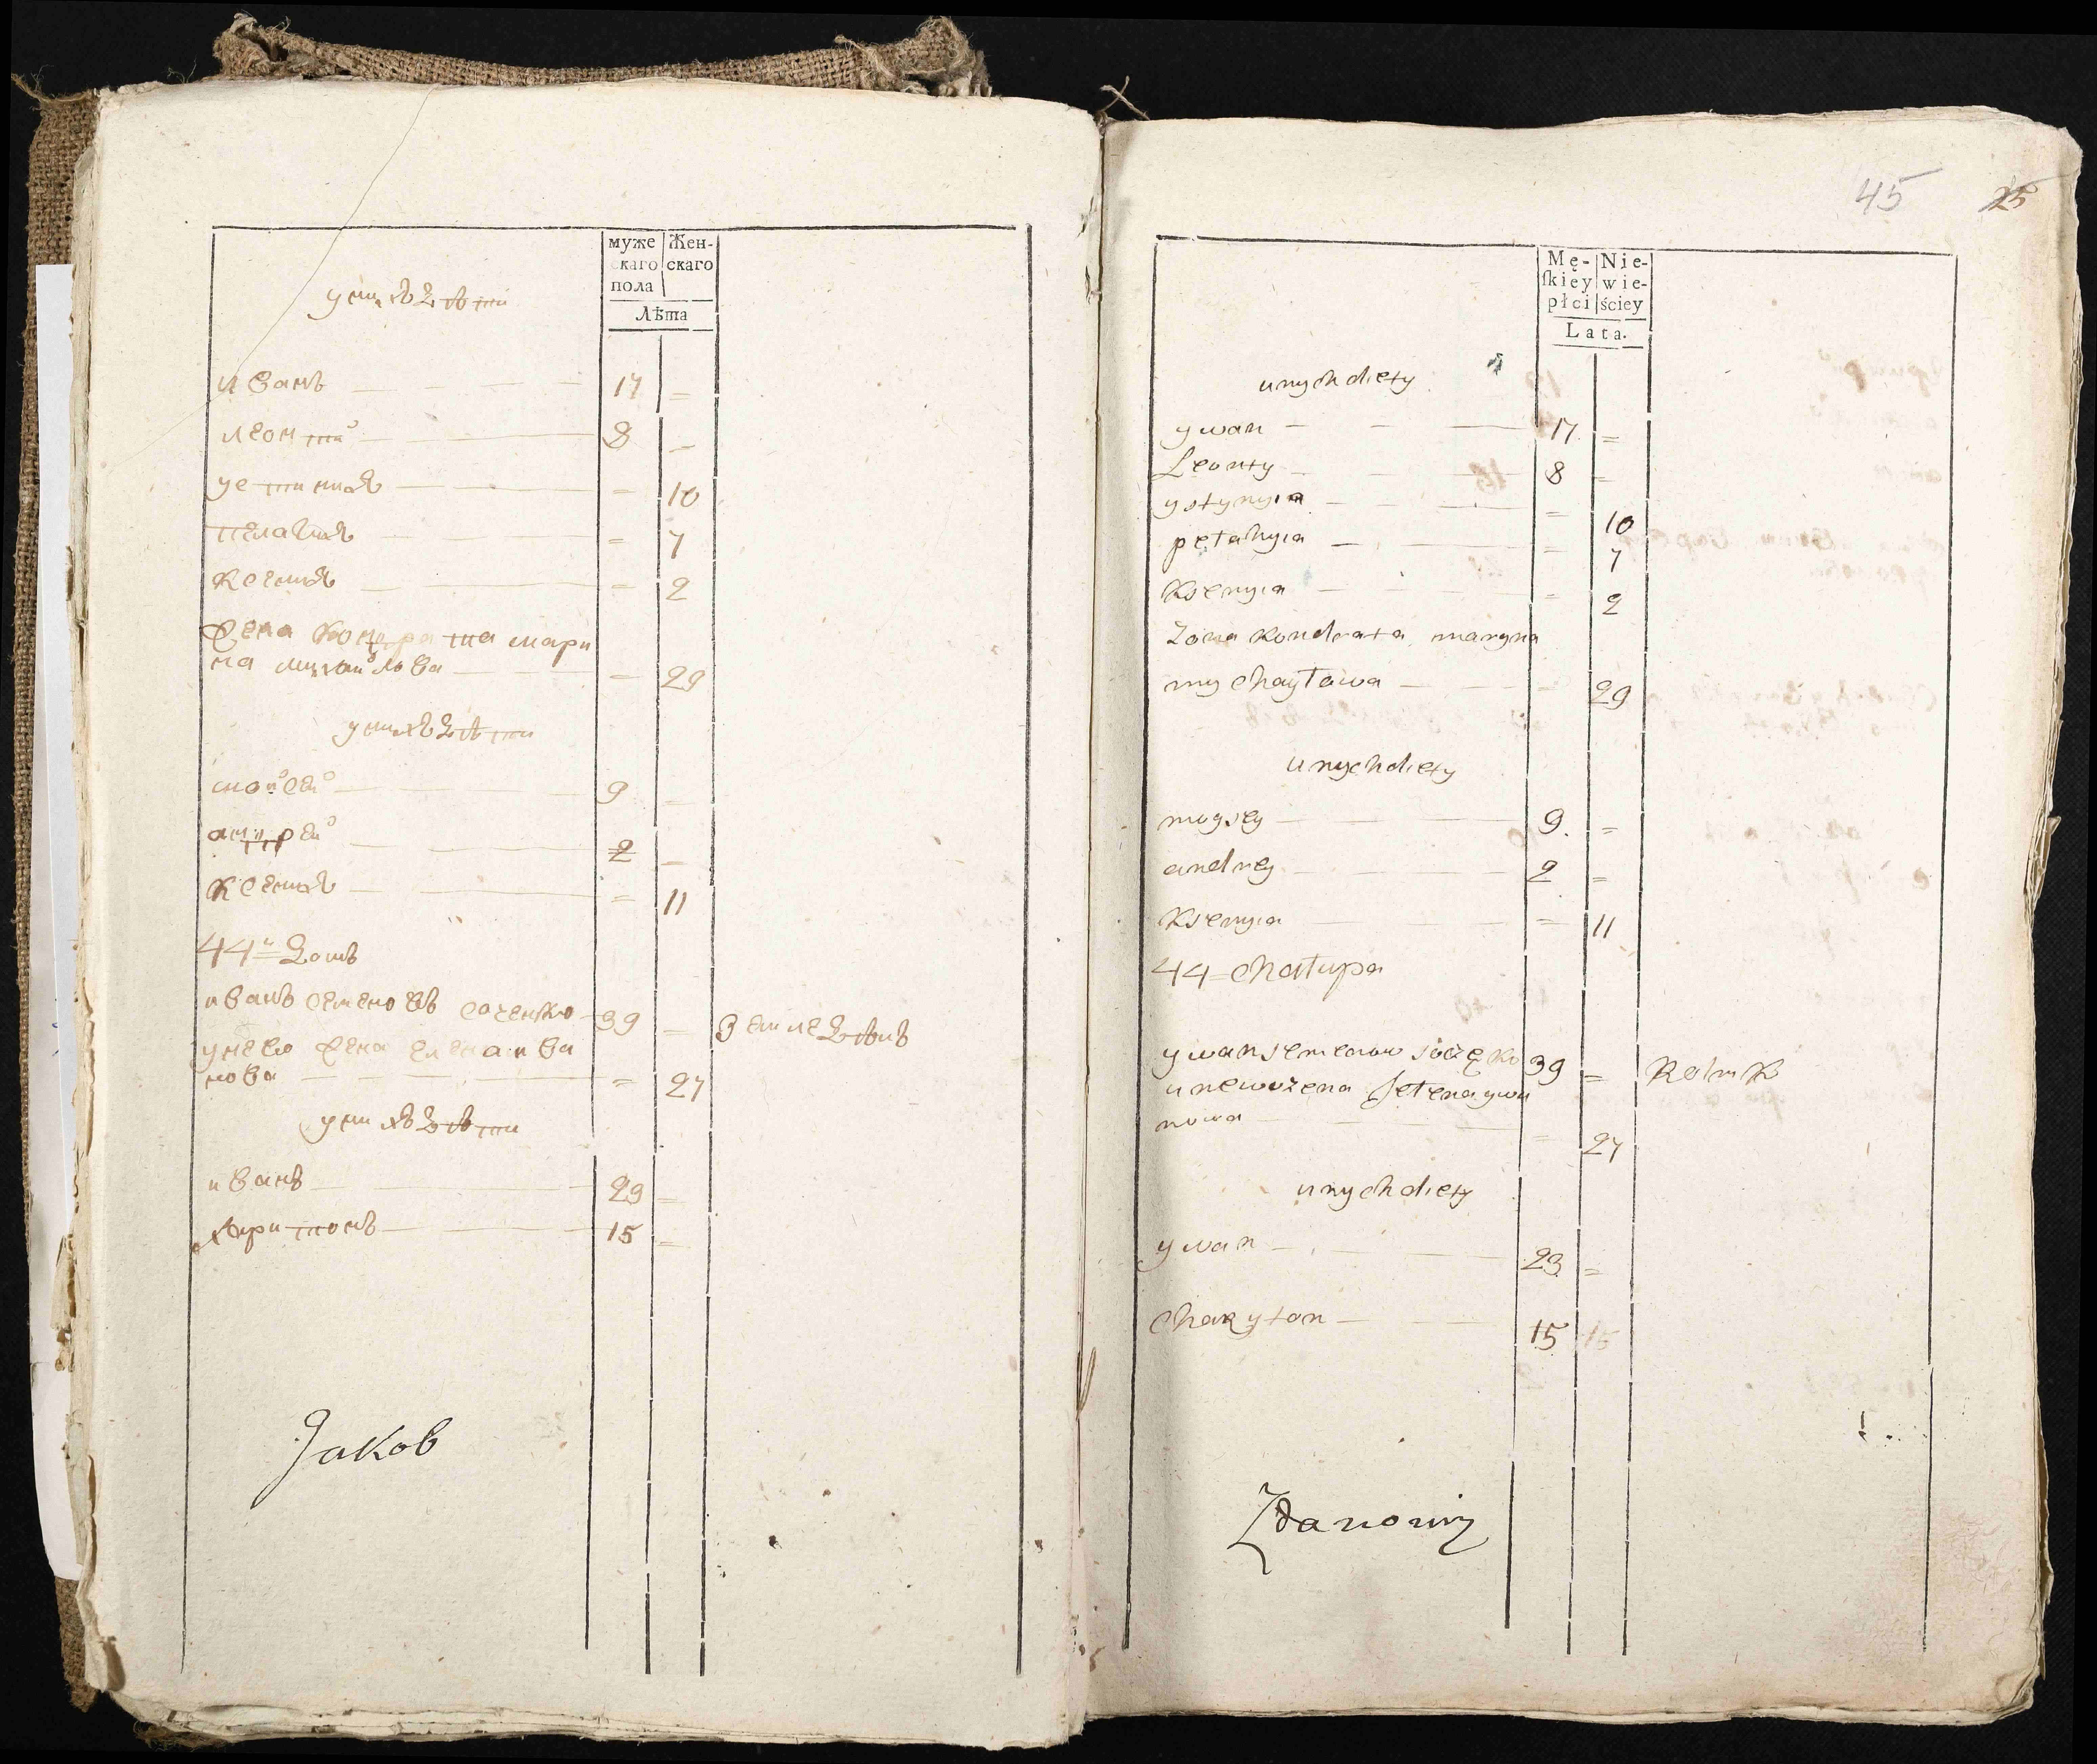 муже Жен-
скаго скаго
пола
Лѣта
у них дѣти
иванъ 17 =
леонтий 8 =
устиниа = 10
пелагиа = 7
ксениа = 2
жена кондрата мари
на михайлова = 29
у них дѣти
мойсей 9 =
андрей 2 =
ксениа = 11
44й домъ
иванъ семеновъ соченко 39 = земледѣлъ
у нево жена елена ива
нова = 27
у них дѣти
иванъ 23 =
харитонъ 15 =
Jakob
45 25
Mę- Nie-
ſkiey wie-
płci ściey
Lata.
unych diety
ywan 17 =
Leonty 8 =
ystynyia = 10
pełahyia = 7
Ksenyia = 2
zona Kondrata maryna
mychayłowa = 29
unych diety
moysey 9. =
andrey 2 =
Ksenyia = 11
44 = Chałupa
ywan semenow soczęko 39 = Rolnik
unewo zena Jełena ywa
nowa = 27
unych diety
ywan 23 =
Charyton 15 15
Zdanowicz